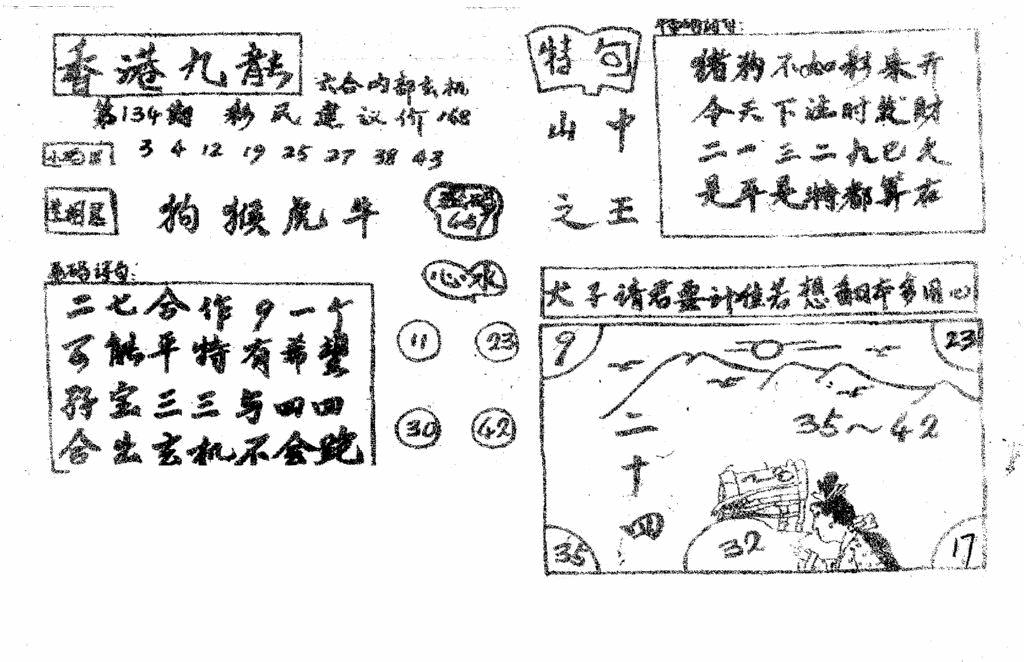 香港九龍
六合内部玄机
第134期 彩民建议价168
3 4 12 19 25 27 38 43
狗猴虎牛
心水
二七合作9一个
可能平特有希望
孖宝三三与四四
合出玄机不会跑
11 23
30 42
特句
山中
之王
猪狗不如彩来开
今天下注时发财
二一三二九七火
是平是特都算在
犬子请君要计值若想翻本多用心
9 23
35~42
二十四
35 32 17